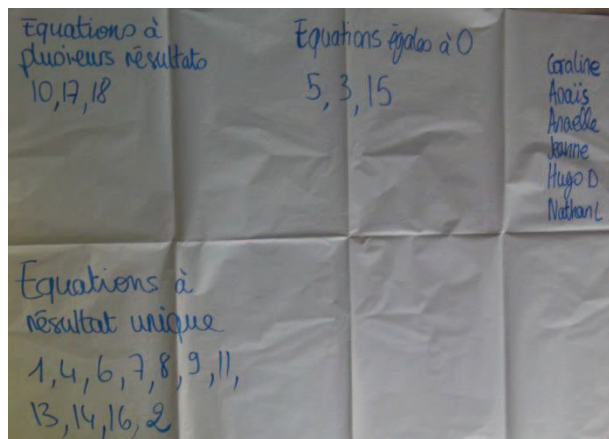 Equations à
plusieurs résultats
10, 17, 18
Equations égales à 0
5, 3, 15
Coraline
Anaïs
Anaelle
Jeanne
Hugo D
Nathan L
Equations à
résultat unique
1, 4, 6, 7, 8, 9, 11,
13, 14, 16, 2